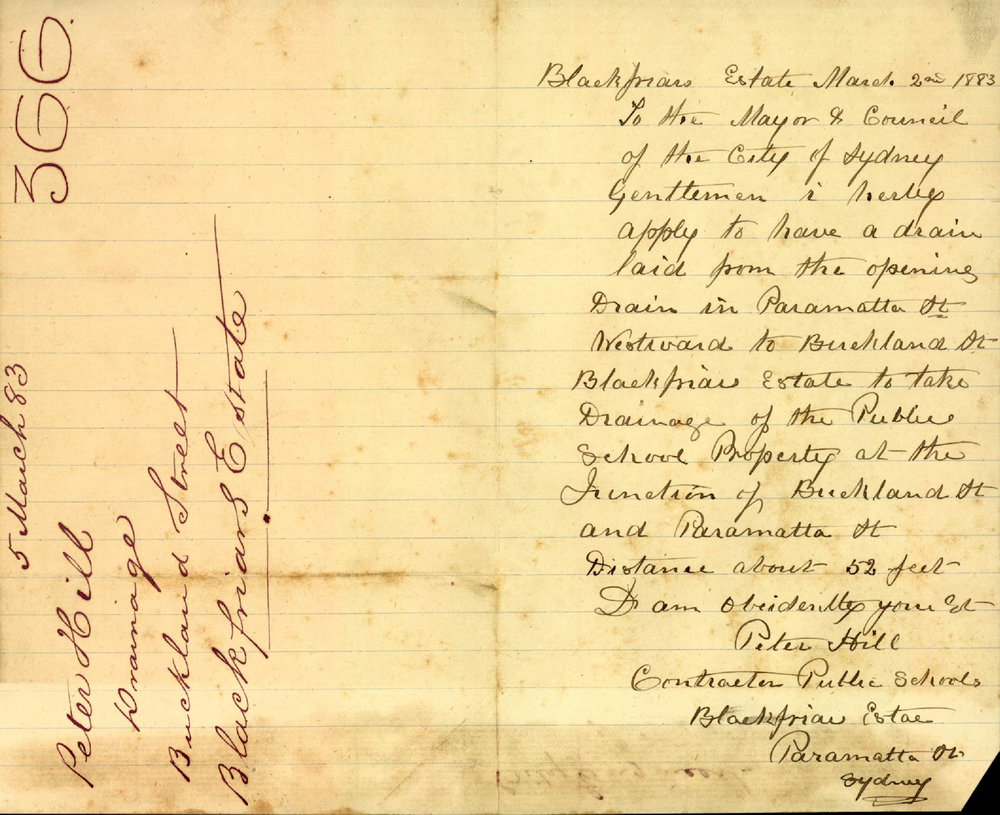 366.
5 March 83
Peter Hill
Drainage
Buckland Street
Blackfriars Estate
Blackfriars Estate March 2nd 1883
To the Mayor & Council
of the City of Sydney
Gentlemen i herby
apply to have a drain
laid from the opening
Drain in Paramatta St
Westward to Buckland St
Blackfriar Estate to take
Drainage of the Public
School Property at the
Junction of Buckland St
and Paramatta St
Distance about 52 feet
I am obeidently your St
Peter Hill
Contractor Public Schools
Blackfriar Estae
Paramatta St
Sydney